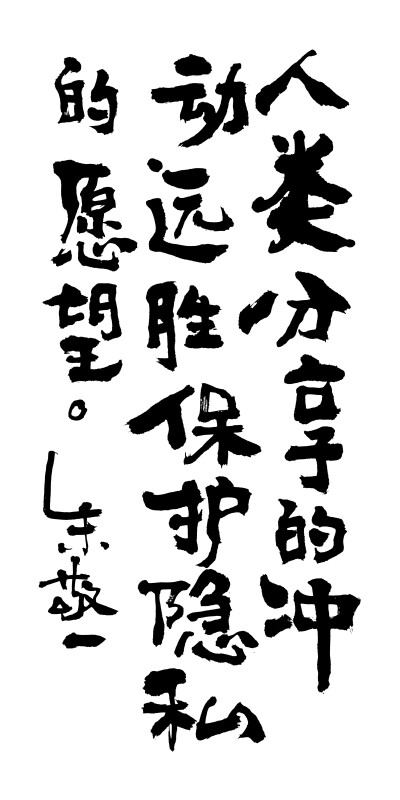 人类分享的冲
动远胜保护隐私
的愿望。
朱敬一